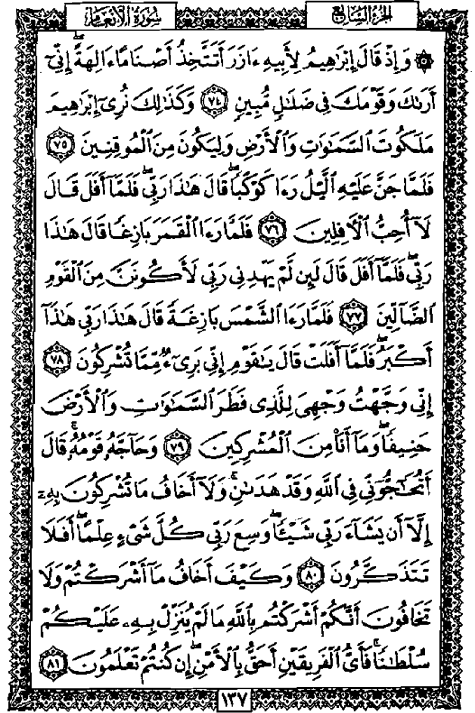 سورة الأنعام الجزء السابع
۞ وَإِذْ قَالَ إِبْرَٰهِيمُ لِأَبِيهِ ءَازَرَ أَتَتَّخِذُ أَصْنَامًا ءَالِهَةً ۖ إِنِّىٓ
أَرَىٰكَ وَقَوْمَكَ فِى ضَلَٰلٍ مُّبِينٍ ٧٤ وَكَذَٰلِكَ نُرِىٓ إِبْرَٰهِيمَ
مَلَكُوتَ ٱلسَّمَٰوَٰتِ وَٱلْأَرْضِ وَلِيَكُونَ مِنَ ٱلْمُوقِنِينَ ٧٥
فَلَمَّا جَنَّ عَلَيْهِ ٱلَّيْلُ رَءَا كَوْكَبًا ۖ قَالَ هَٰذَا رَبِّى ۖ فَلَمَّآ أَفَلَ قَالَ
لَآ أُحِبُّ ٱلْءَافِلِينَ ٧٦ فَلَمَّا رَءَا ٱلْقَمَرَ بَازِغًا قَالَ هَٰذَا
رَبِّى ۖ فَلَمَّآ أَفَلَ قَالَ لَئِن لَّمْ يَهْدِنِى رَبِّى لَأَكُونَنَّ مِنَ ٱلْقَوْمِ
ٱلضَّآلِّينَ ٧٧ فَلَمَّا رَءَا ٱلشَّمْسَ بَازِغَةً قَالَ هَٰذَا رَبِّى هَٰذَآ
أَكْبَرُ ۖ فَلَمَّآ أَفَلَتْ قَالَ يَٰقَوْمِ إِنِّى بَرِىٓءٌ مِّمَّا تُشْرِكُونَ ٧٨
إِنِّى وَجَّهْتُ وَجْهِىَ لِلَّذِى فَطَرَ ٱلسَّمَٰوَٰتِ وَٱلْأَرْضَ
حَنِيفًا ۖ وَمَآ أَنَا۠ مِنَ ٱلْمُشْرِكِينَ ٧٩ وَحَآجَّهُۥ قَوْمُهُۥ ۚ قَالَ
أَتُحَٰٓجُّوٓنِّى فِى ٱللَّهِ وَقَدْ هَدَىٰنِ ۚ وَلَآ أَخَافُ مَا تُشْرِكُونَ بِهِۦٓ
إِلَّآ أَن يَشَآءَ رَبِّى شَيْـًٔا ۗ وَسِعَ رَبِّى كُلَّ شَىْءٍ عِلْمًا ۗ أَفَلَا
تَتَذَكَّرُونَ ٨٠ وَكَيْفَ أَخَافُ مَآ أَشْرَكْتُمْ وَلَا
تَخَافُونَ أَنَّكُمْ أَشْرَكْتُم بِٱللَّهِ مَا لَمْ يُنَزِّلْ بِهِۦ عَلَيْكُمْ
سُلْطَٰنًا ۚ فَأَىُّ ٱلْفَرِيقَيْنِ أَحَقُّ بِٱلْأَمْنِ ۖ إِن كُنتُمْ تَعْلَمُونَ ٨١
١٣٧